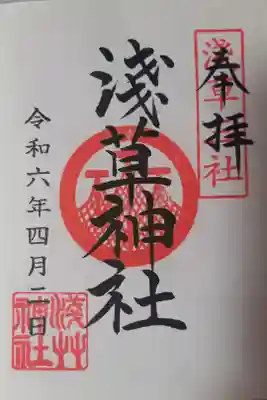 奉拝
浅草社
淺草神社
令和六年四月二日
淺草神社